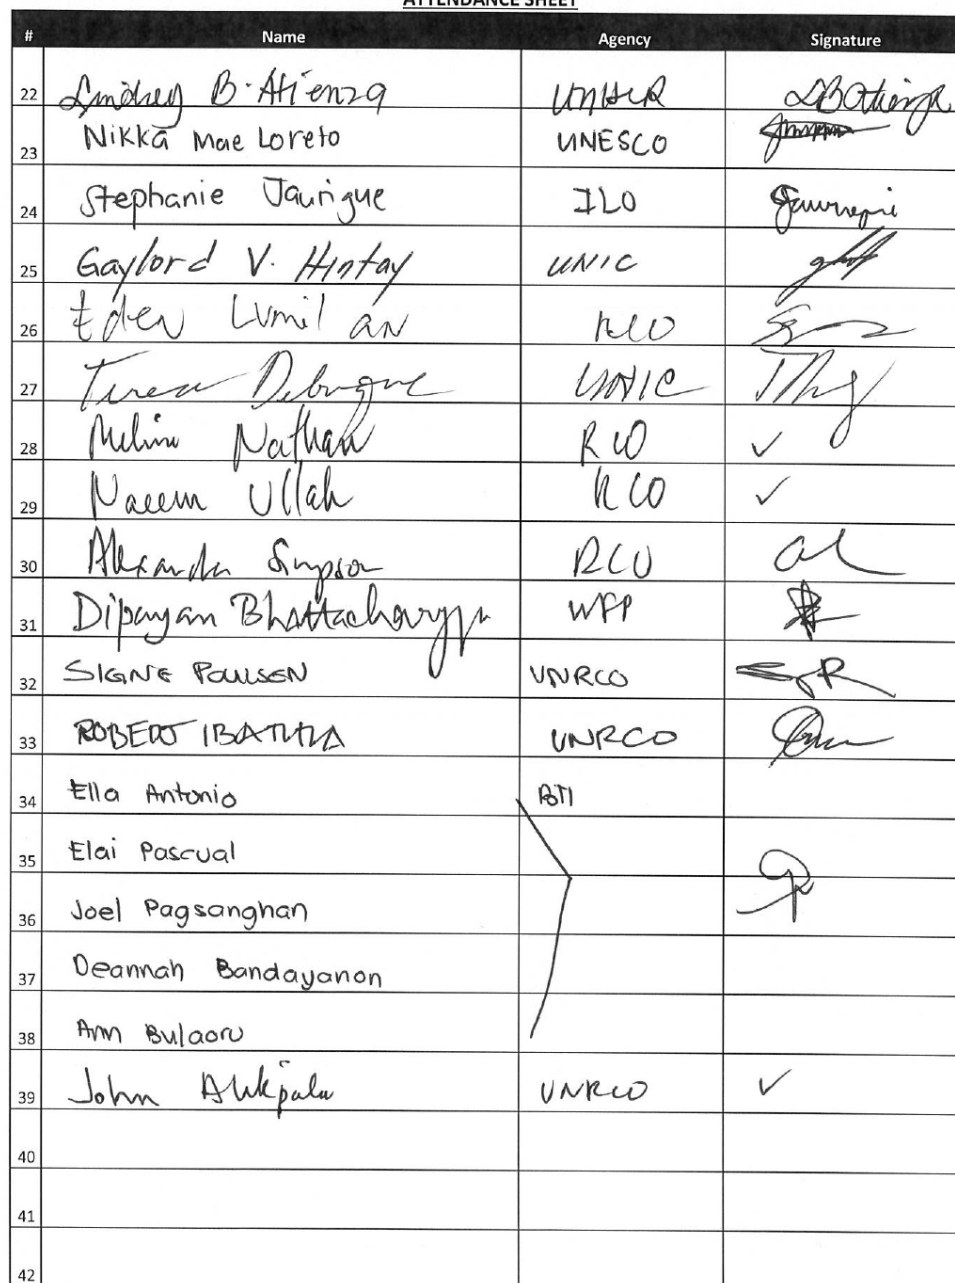 ATTENDANCE SHEET
# Name Agency Signature
22 Lindsey B. Atienza UNHCR
23 Nikka Mae Loreto UNESCO
24 Stephanie Jaurigue ILO
25 Gaylord V. Hintay UNIC
26 Eden Lumilan RCO
27 Teresa Debuque UNIC
28 Nathan RCO ✓
29 Naeem Ullah RCO ✓
30 Alexander Simpson RCO
31 Dipayan Bhattacharyya WFP
32 SIGNE POULSEN UNRCO
33 ROBERTO UNRCO
34 Ella Antonio BTI
35 Elai Pascual
36 Joel Pagsanghan
37 Deannah Bandayanon
38 Ann Bulaoro
39 John UNRCO ✓
40
41
42